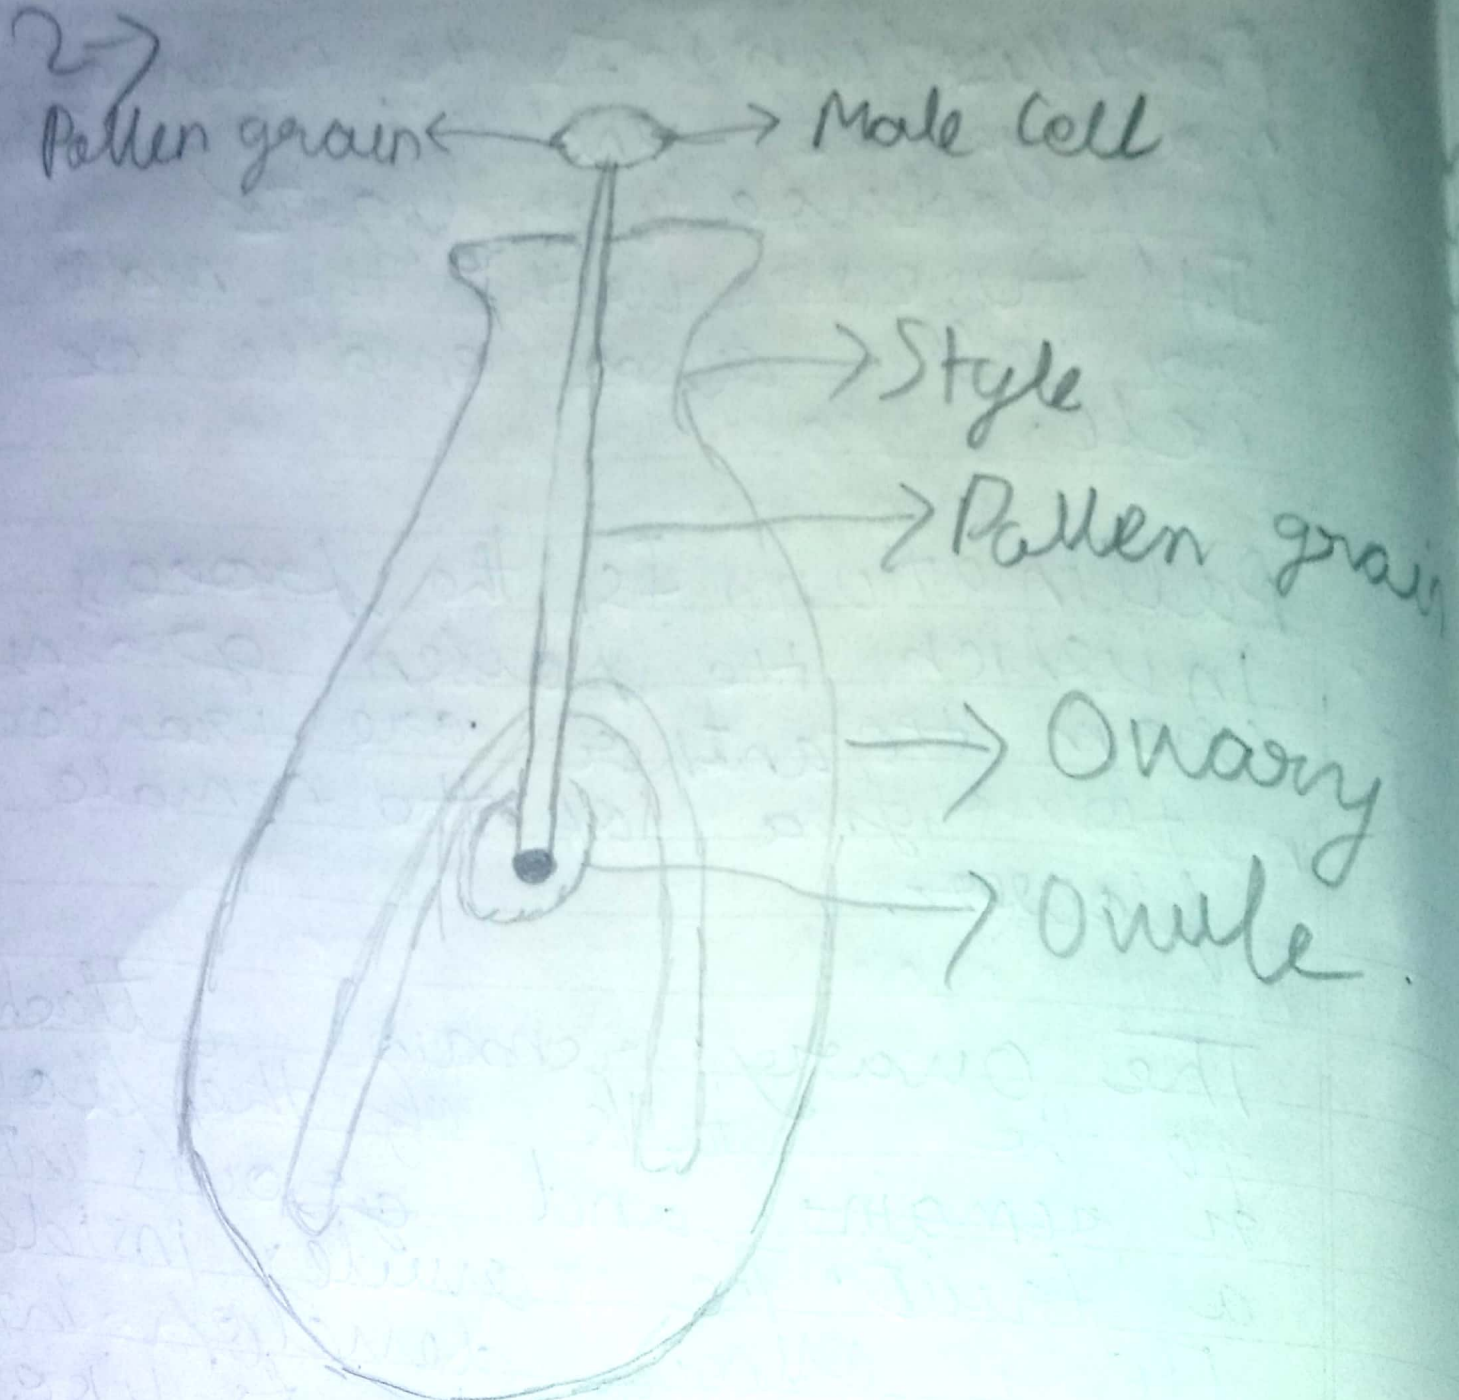 2→
Pollen grain
Male Cell
Style
Pollen grain
Ovary
Ovule.